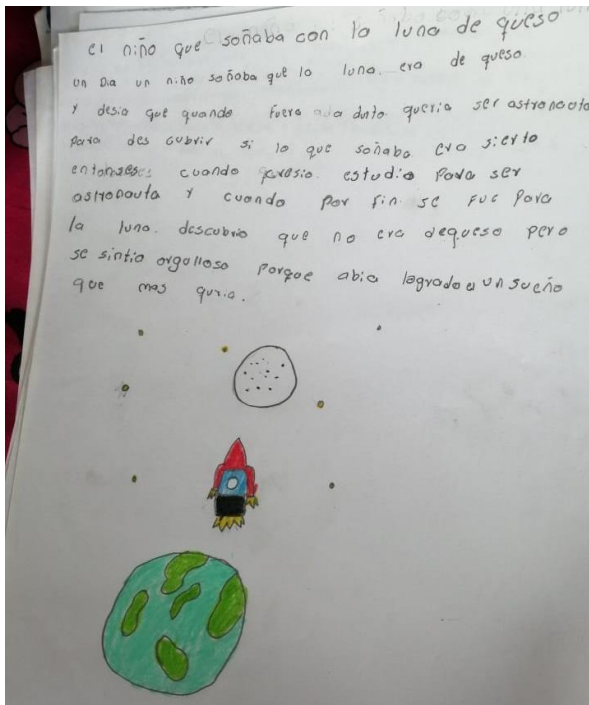 el niño que soñaba con la luna de queso
un Dia un niño soñaba que la luna. era de queso
y desia que quando fuera adulto queria ser astronauta
para des cubrir si lo que soñaba era sierto
entonses cuando cresio. estudio para ser
astronauta y cuando por fin se fue para
la luna. descubrio que no era dequeso pero
se sintio orgulloso porque abia logrado un sueño
que mas quria.